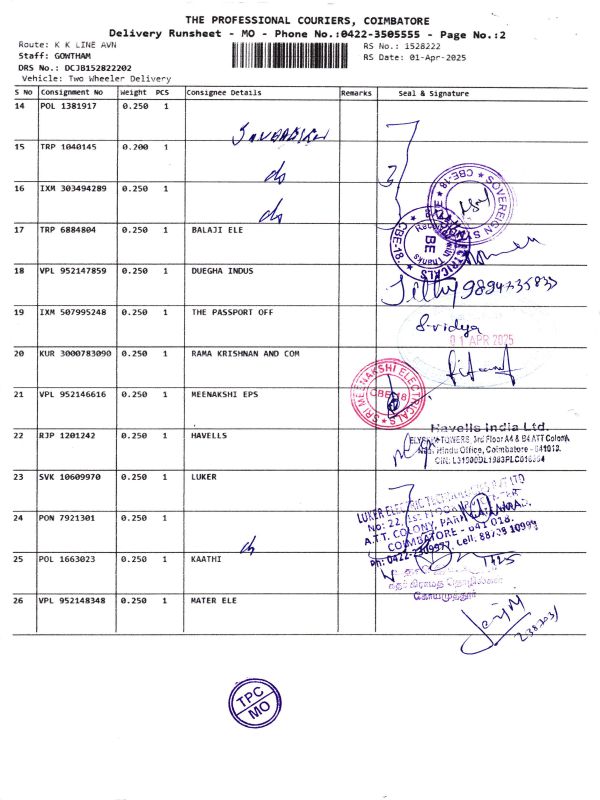 THE PROFESSIONAL COURIERS, COIMBATORE
Delivery Runsheet - MO - Phone No.:0422-3505555 - Page No.:2
Route: K K LINE AVN
RS No.: 1528222
Staff: GOWTHAM
RS Date: 01-Apr-2025
DRS No.: DCJB152822202
Vehicle: Two Wheeler Delivery
S No Consignment No Weight PCS Consignee Details Remarks Seal & Signature
14 POL 1381917 0.250 1
15 TRP 1040145 0.200 1
do
16 IXM 303494289 0.250 1
do
CBE-18 SOVEREIGN
17 TRP 6884804 0.250 1 BALAJI ELE
CBE-18 BE with Thanks
18 VPL 952147859 0.250 1 DUEGHA INDUS
19 IXM 507995248 0.250 1 THE PASSPORT OFF
S-vidya
01 APR 2025
20 KUR 3000783090 0.250 1 RAMA KRISHNAN AND COM
21 VPL 952146616 0.250 1 MEENAKSHI EPS
SRI MEENAKSHI ELECTRICALS CBE-18
22 RJP 1201242 0.250 1 HAVELLS
Havells India Ltd.
TOWERS, 3rd Floor A4 & B4 ATT Colony
Hindu Office, Coimbatore - 641018.
23 SVK 10609970 0.250 1 LUKER
LUKER ELECTRIC LTD
No: 22, 1st
24 PON 7921301 0.250 1
do
A.T.T. COLONY,
COIMBATORE - 641 018.
Cell: 88708 10999
25 POL 1663023 0.250 1 KAATHI
கோயமுத்தூர்
26 VPL 952148348 0.250 1 MATER ELE
TPC
MO